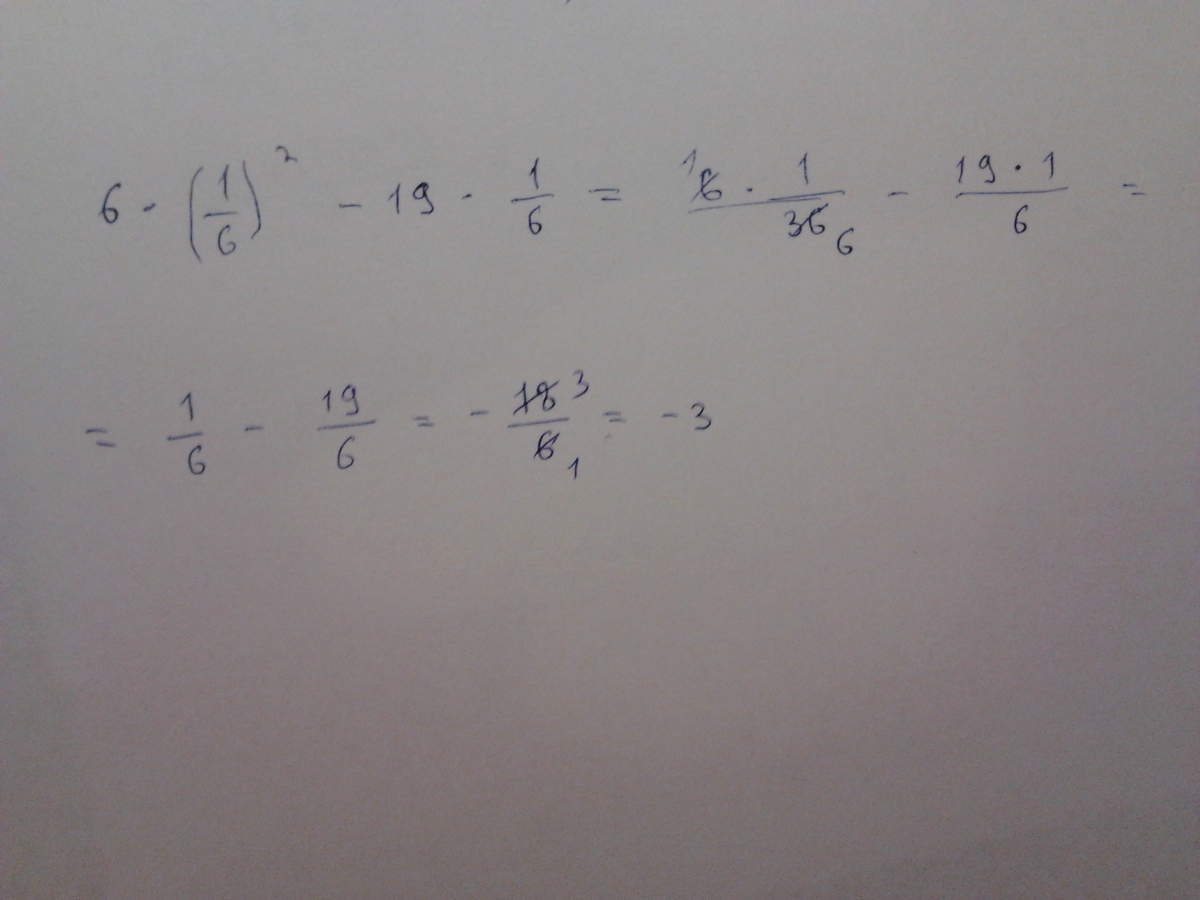 6 · (1/6)² - 19 · 1/6 = ¹6 · 1/36 6 - 19 · 1/6 =
= 1/6 - 19/6 = - 18 3/6 1 = - 3